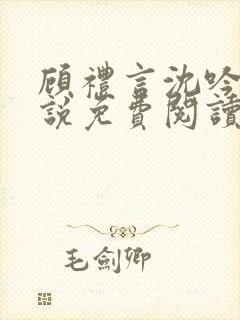 顧禮言沈吟
說免費閱讀
毛劍卿